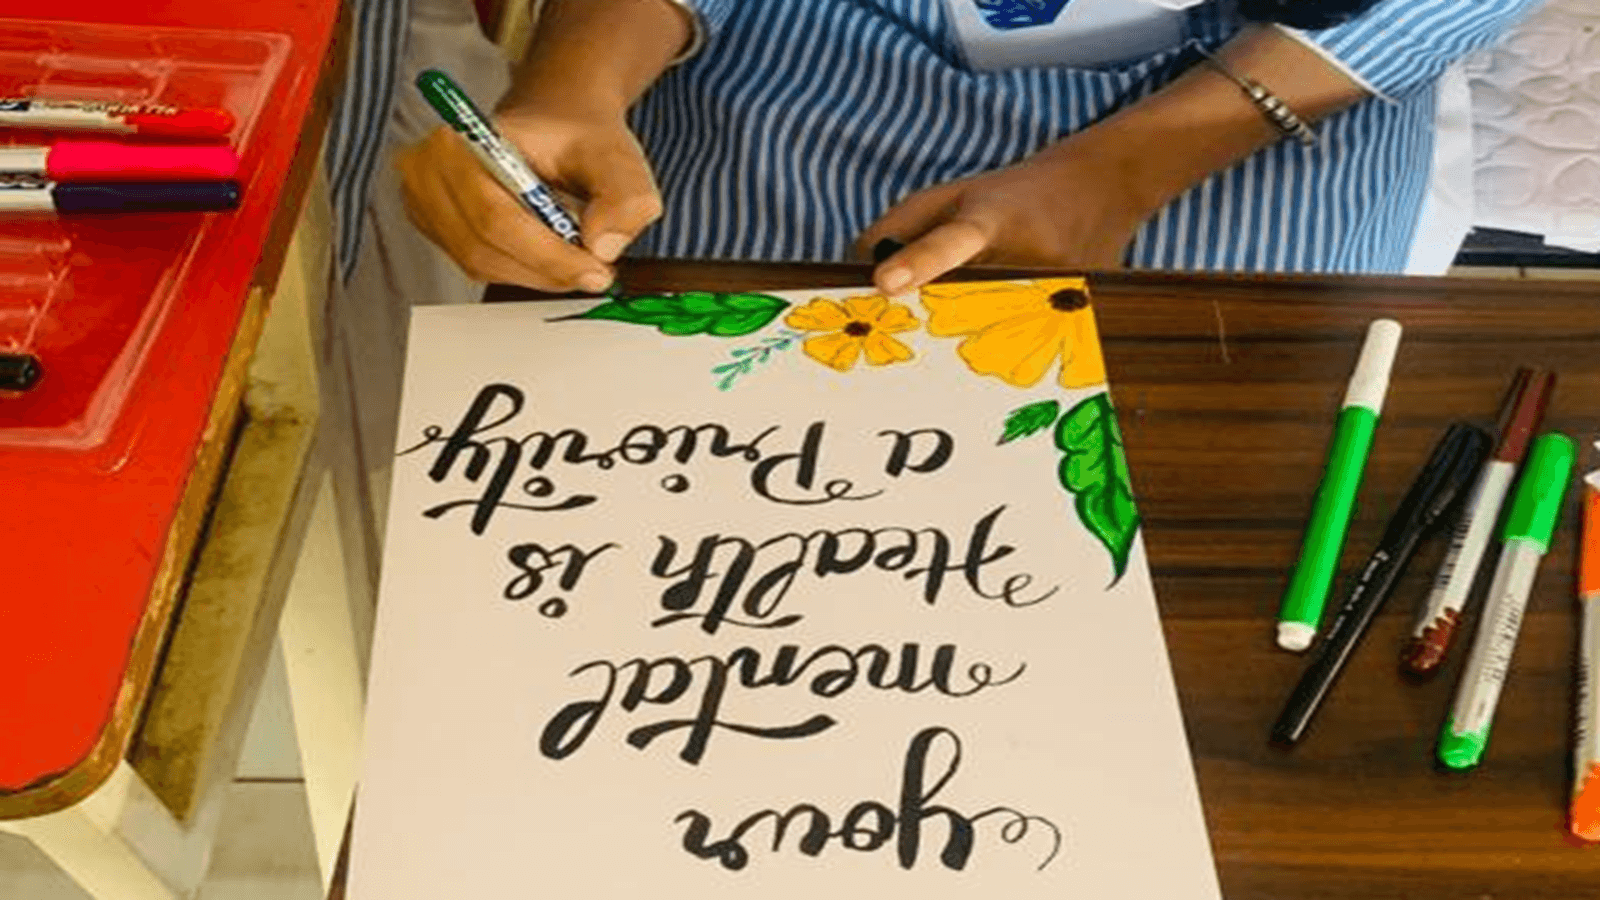 your
mental
Health is
a Priority